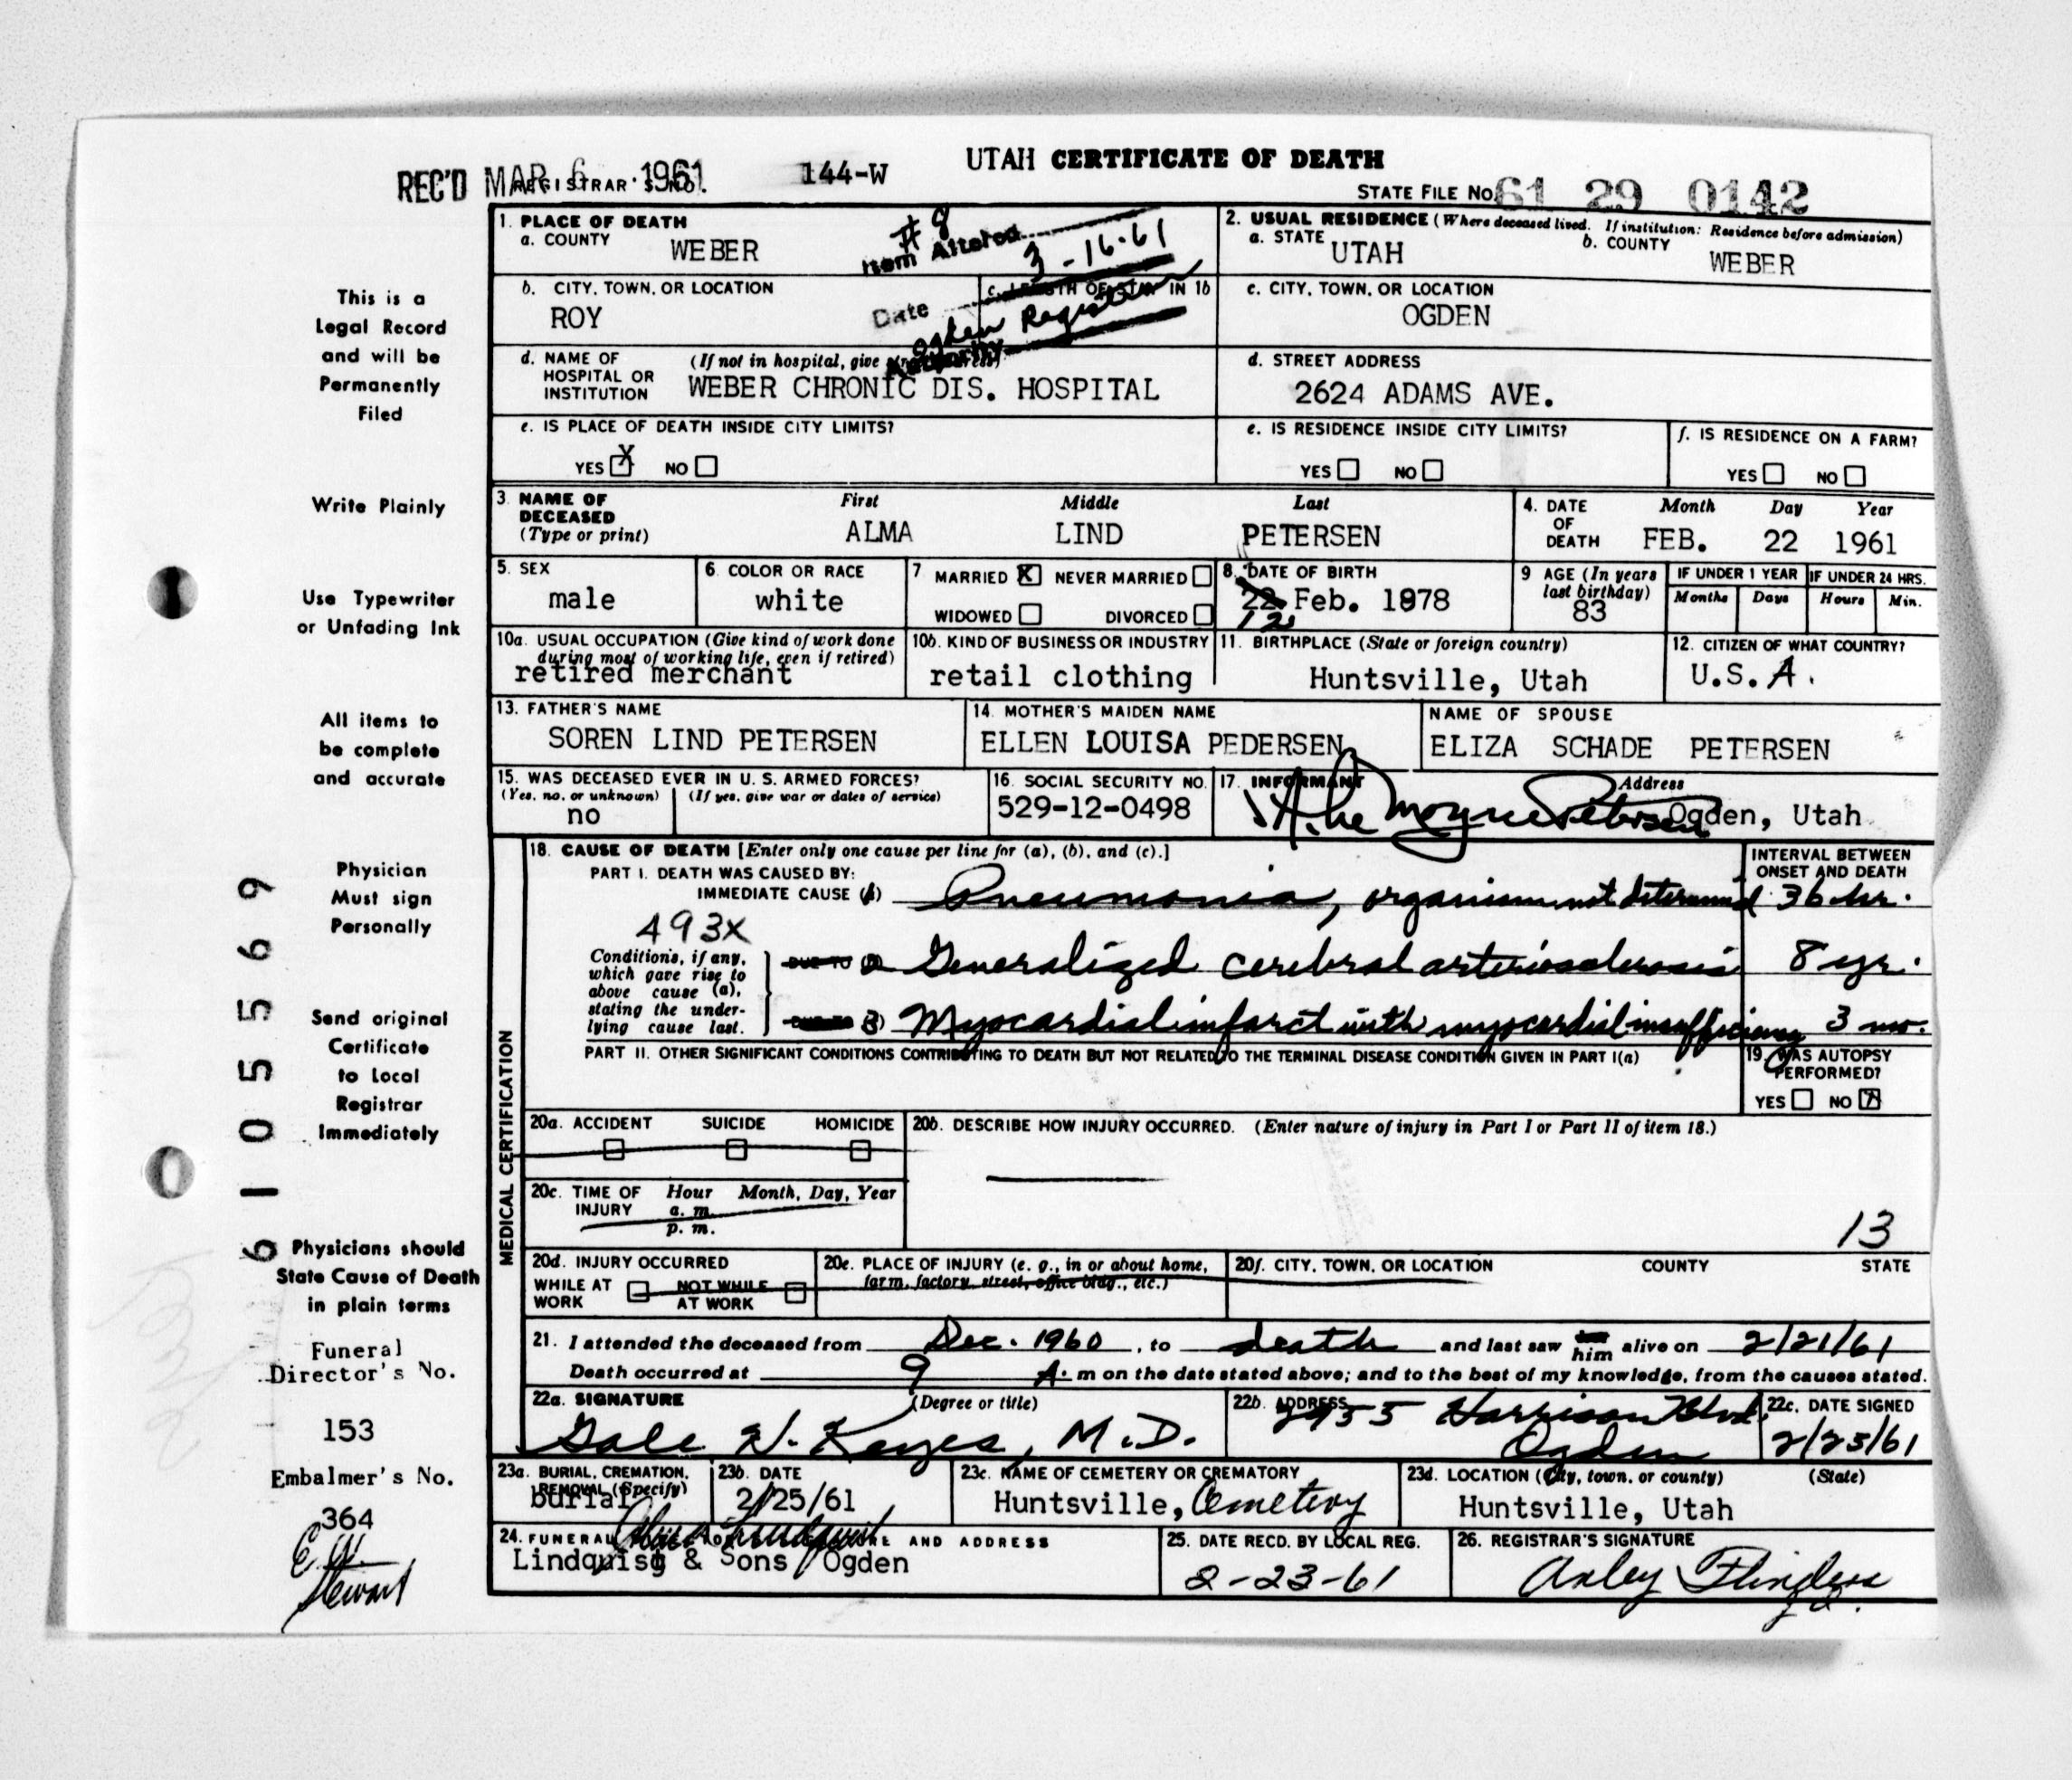 UTAH CERTIFICATE OF DEATH
REC'D MAR 6 1961 REGISTRAR'S NO. 144-W
STATE FILE No. 61 29 0142
1. PLACE OF DEATH
a. COUNTY WEBER
# 8
Item Altered 3-16-61
Date
Ogden Registrar
Authority
2. USUAL RESIDENCE (Where deceased lived. If institution: Residence before admission)
a. STATE UTAH b. COUNTY WEBER
b. CITY, TOWN, OR LOCATION ROY
c. LENGTH OF STAY IN 1b
c. CITY, TOWN, OR LOCATION OGDEN
d. NAME OF HOSPITAL OR INSTITUTION (If not in hospital, give street address) WEBER CHRONIC DIS. HOSPITAL
d. STREET ADDRESS 2624 ADAMS AVE.
e. IS PLACE OF DEATH INSIDE CITY LIMITS?
YES X NO
e. IS RESIDENCE INSIDE CITY LIMITS?
YES NO
f. IS RESIDENCE ON A FARM?
YES NO
3. NAME OF DECEASED (Type or print)
First Middle Last
ALMA LIND PETERSEN
4. DATE OF DEATH Month Day Year
FEB. 22 1961
5. SEX male
6. COLOR OR RACE white
7 MARRIED X NEVER MARRIED
WIDOWED DIVORCED
8. DATE OF BIRTH
22 Feb. 1878
12
9 AGE (In years last birthday) 83
IF UNDER 1 YEAR Months Days
IF UNDER 24 HRS. Hours Min.
10a. USUAL OCCUPATION (Give kind of work done during most of working life, even if retired)
retired merchant
10b. KIND OF BUSINESS OR INDUSTRY
retail clothing
11. BIRTHPLACE (State or foreign country)
Huntsville, Utah
12. CITIZEN OF WHAT COUNTRY?
U.S.A.
13. FATHER'S NAME
SOREN LIND PETERSEN
14. MOTHER'S MAIDEN NAME
ELLEN LOUISA PEDERSEN
NAME OF SPOUSE
ELIZA SCHADE PETERSEN
15. WAS DECEASED EVER IN U. S. ARMED FORCES?
(Yes, no, or unknown) (If yes, give war or dates of service)
no
16. SOCIAL SECURITY NO.
529-12-0498
17. INFORMANT Address
Petersen Ogden, Utah
MEDICAL CERTIFICATION
18. CAUSE OF DEATH [Enter only one cause per line for (a), (b), and (c).]
INTERVAL BETWEEN ONSET AND DEATH
PART I. DEATH WAS CAUSED BY:
IMMEDIATE CAUSE Pneumonia, organism not determined 36 hr.
493X
Conditions, if any, which gave rise to above cause (a), stating the underlying cause last.
DUE TO 2 Generalized cerebral arteriosclerosis 8 yr.
DUE TO 3) Myocardial infarct with myocardial insufficiency 3 mo.
PART II. OTHER SIGNIFICANT CONDITIONS CONTRIBUTING TO DEATH BUT NOT RELATED TO THE TERMINAL DISEASE CONDITION GIVEN IN PART I(a)
19. WAS AUTOPSY PERFORMED?
YES NO X
20a. ACCIDENT SUICIDE HOMICIDE
20b. DESCRIBE HOW INJURY OCCURRED. (Enter nature of injury in Part I or Part II of item 18.)
20c. TIME OF INJURY Hour Month, Day, Year
a. m.
p. m.
13
20d. INJURY OCCURRED
WHILE AT WORK NOT WHILE AT WORK
20e. PLACE OF INJURY (e. g., in or about home, farm, factory, street, office bldg., etc.)
20f. CITY, TOWN, OR LOCATION COUNTY STATE
21. I attended the deceased from Dec. 1960, to death and last saw him alive on 2/21/61
Death occurred at 9 A. m on the date stated above; and to the best of my knowledge, from the causes stated.
22a. SIGNATURE (Degree or title)
Gale W. Keyes, M.D.
22b. ADDRESS
2955 Harrison Blvd.
Ogden
22c. DATE SIGNED
2/23/61
23a. BURIAL, CREMATION, REMOVAL (Specify)
burial
23b. DATE
2/25/61
23c. NAME OF CEMETERY OR CREMATORY
Huntsville, Cemetery
23d. LOCATION (City, town, or county) (State)
Huntsville, Utah
24. FUNERAL AND ADDRESS
Lindquist & Sons Ogden
25. DATE RECD. BY LOCAL REG.
2-23-61
26. REGISTRAR'S SIGNATURE
Arley Flinders
This is a
Legal Record
and will be
Permanently
Filed
Write Plainly
Use Typewriter
or Unfading Ink
All items to
be complete
and accurate
Physician
Must sign
Personally
Send original
Certificate
to Local
Registrar
Immediately
Physicians should
State Cause of Death
in plain terms
Funeral
Director's No.
153
Embalmer's No.
364
E W
Stewart
61 05569